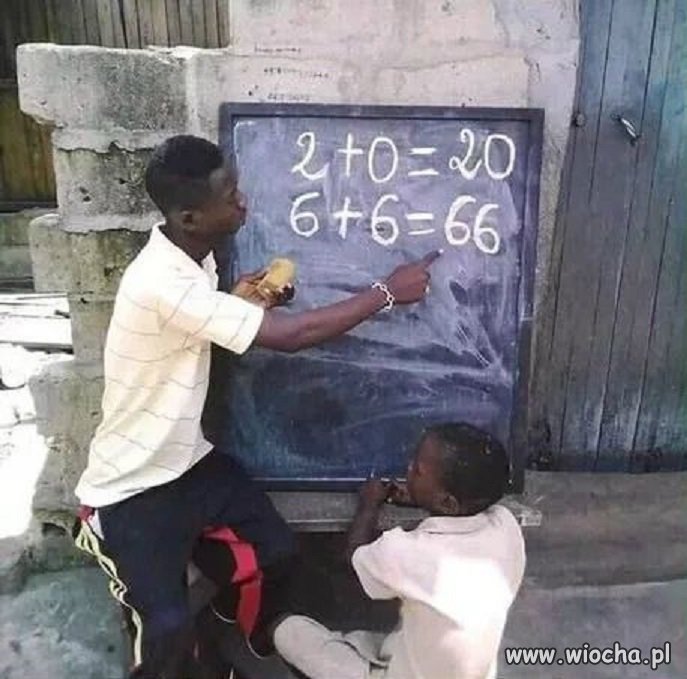 2+0=20
6+6=66
www.wiocha.pl